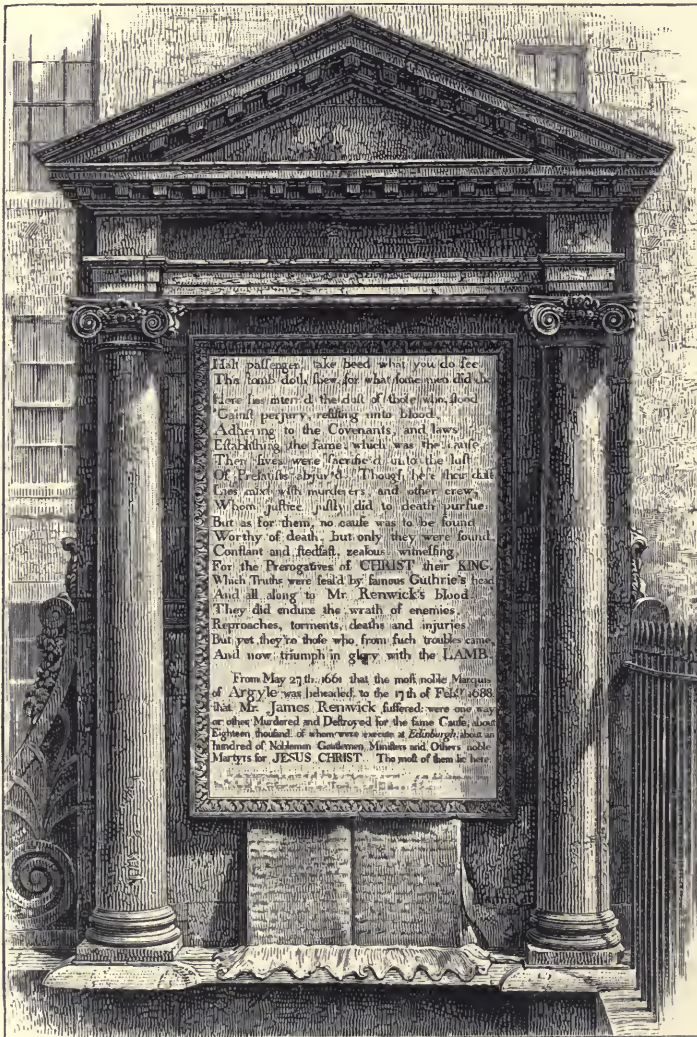 Halt passenger, take heed what you do see,
This tomb doth shew, for what some men did die.
Here lies interr'd the dust of those who stood
'Gainst perjury, resisting unto blood;
Adhering to the Covenants, and laws
Establishing the same: which was the cause
Their lives were sacrific'd unto the lust
Of Prelatists abjur'd. Though here their dust
Lies mixt with murderers, and other crew,
Whom justice justly did to death pursue:
But as for them, no cause was to be found
Worthy of death, but only they were found,
Constant and stedfast, zealous witnessing,
For the Prerogatives of CHRIST their KING.
Which Truths were seal'd by famous Guthrie's head,
And all along to Mr. Renwick's blood.
They did endure the wrath of enemies,
Reproaches, torments, deaths and injuries.
But yet they're those who from such troubles came,
And now triumph in glory with the LAMB.
From May 27th. 1661 that the most noble Marquis
of Argyle was beheaded, to the 17th of Febry. 1688
that Mr. James Renwick suffered; were one way
or other Murdered and Destroyed for the same Cause, about
Eighteen thousand, of whom were execute at Edinburgh, about an
hundred of Noblemen Gentlemen, Ministers and Others noble
Martyrs for JESUS CHRIST. The most of them lie here.